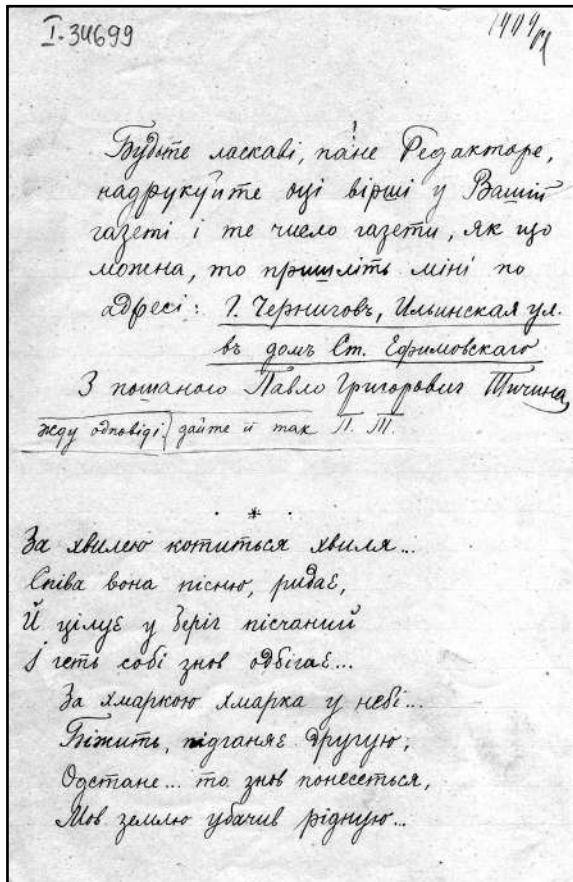 I-34699
Будьте ласкаві, пане Редакторе,
надрукуйте оці вірші у Вашій
газеті і те число газети, як що
можна, то пришліть міні по
адресі: Г. Черниговъ, Ильинская ул.
въ домъ Ст. Ефимовскаго
З пошаною Павло Григорович Тичина
жду одповіді. дайте й так П. Т.
*
За хвилею котиться хвиля...
Співа вона пісню, ридає,
Й цілує у беріг пісчаний
І геть собі знов одбігає...
За хмаркою хмарка у небі...
Біжить, підганяє другую;
Одстане... то знов понесеться,
Мов землю убачив рідную...